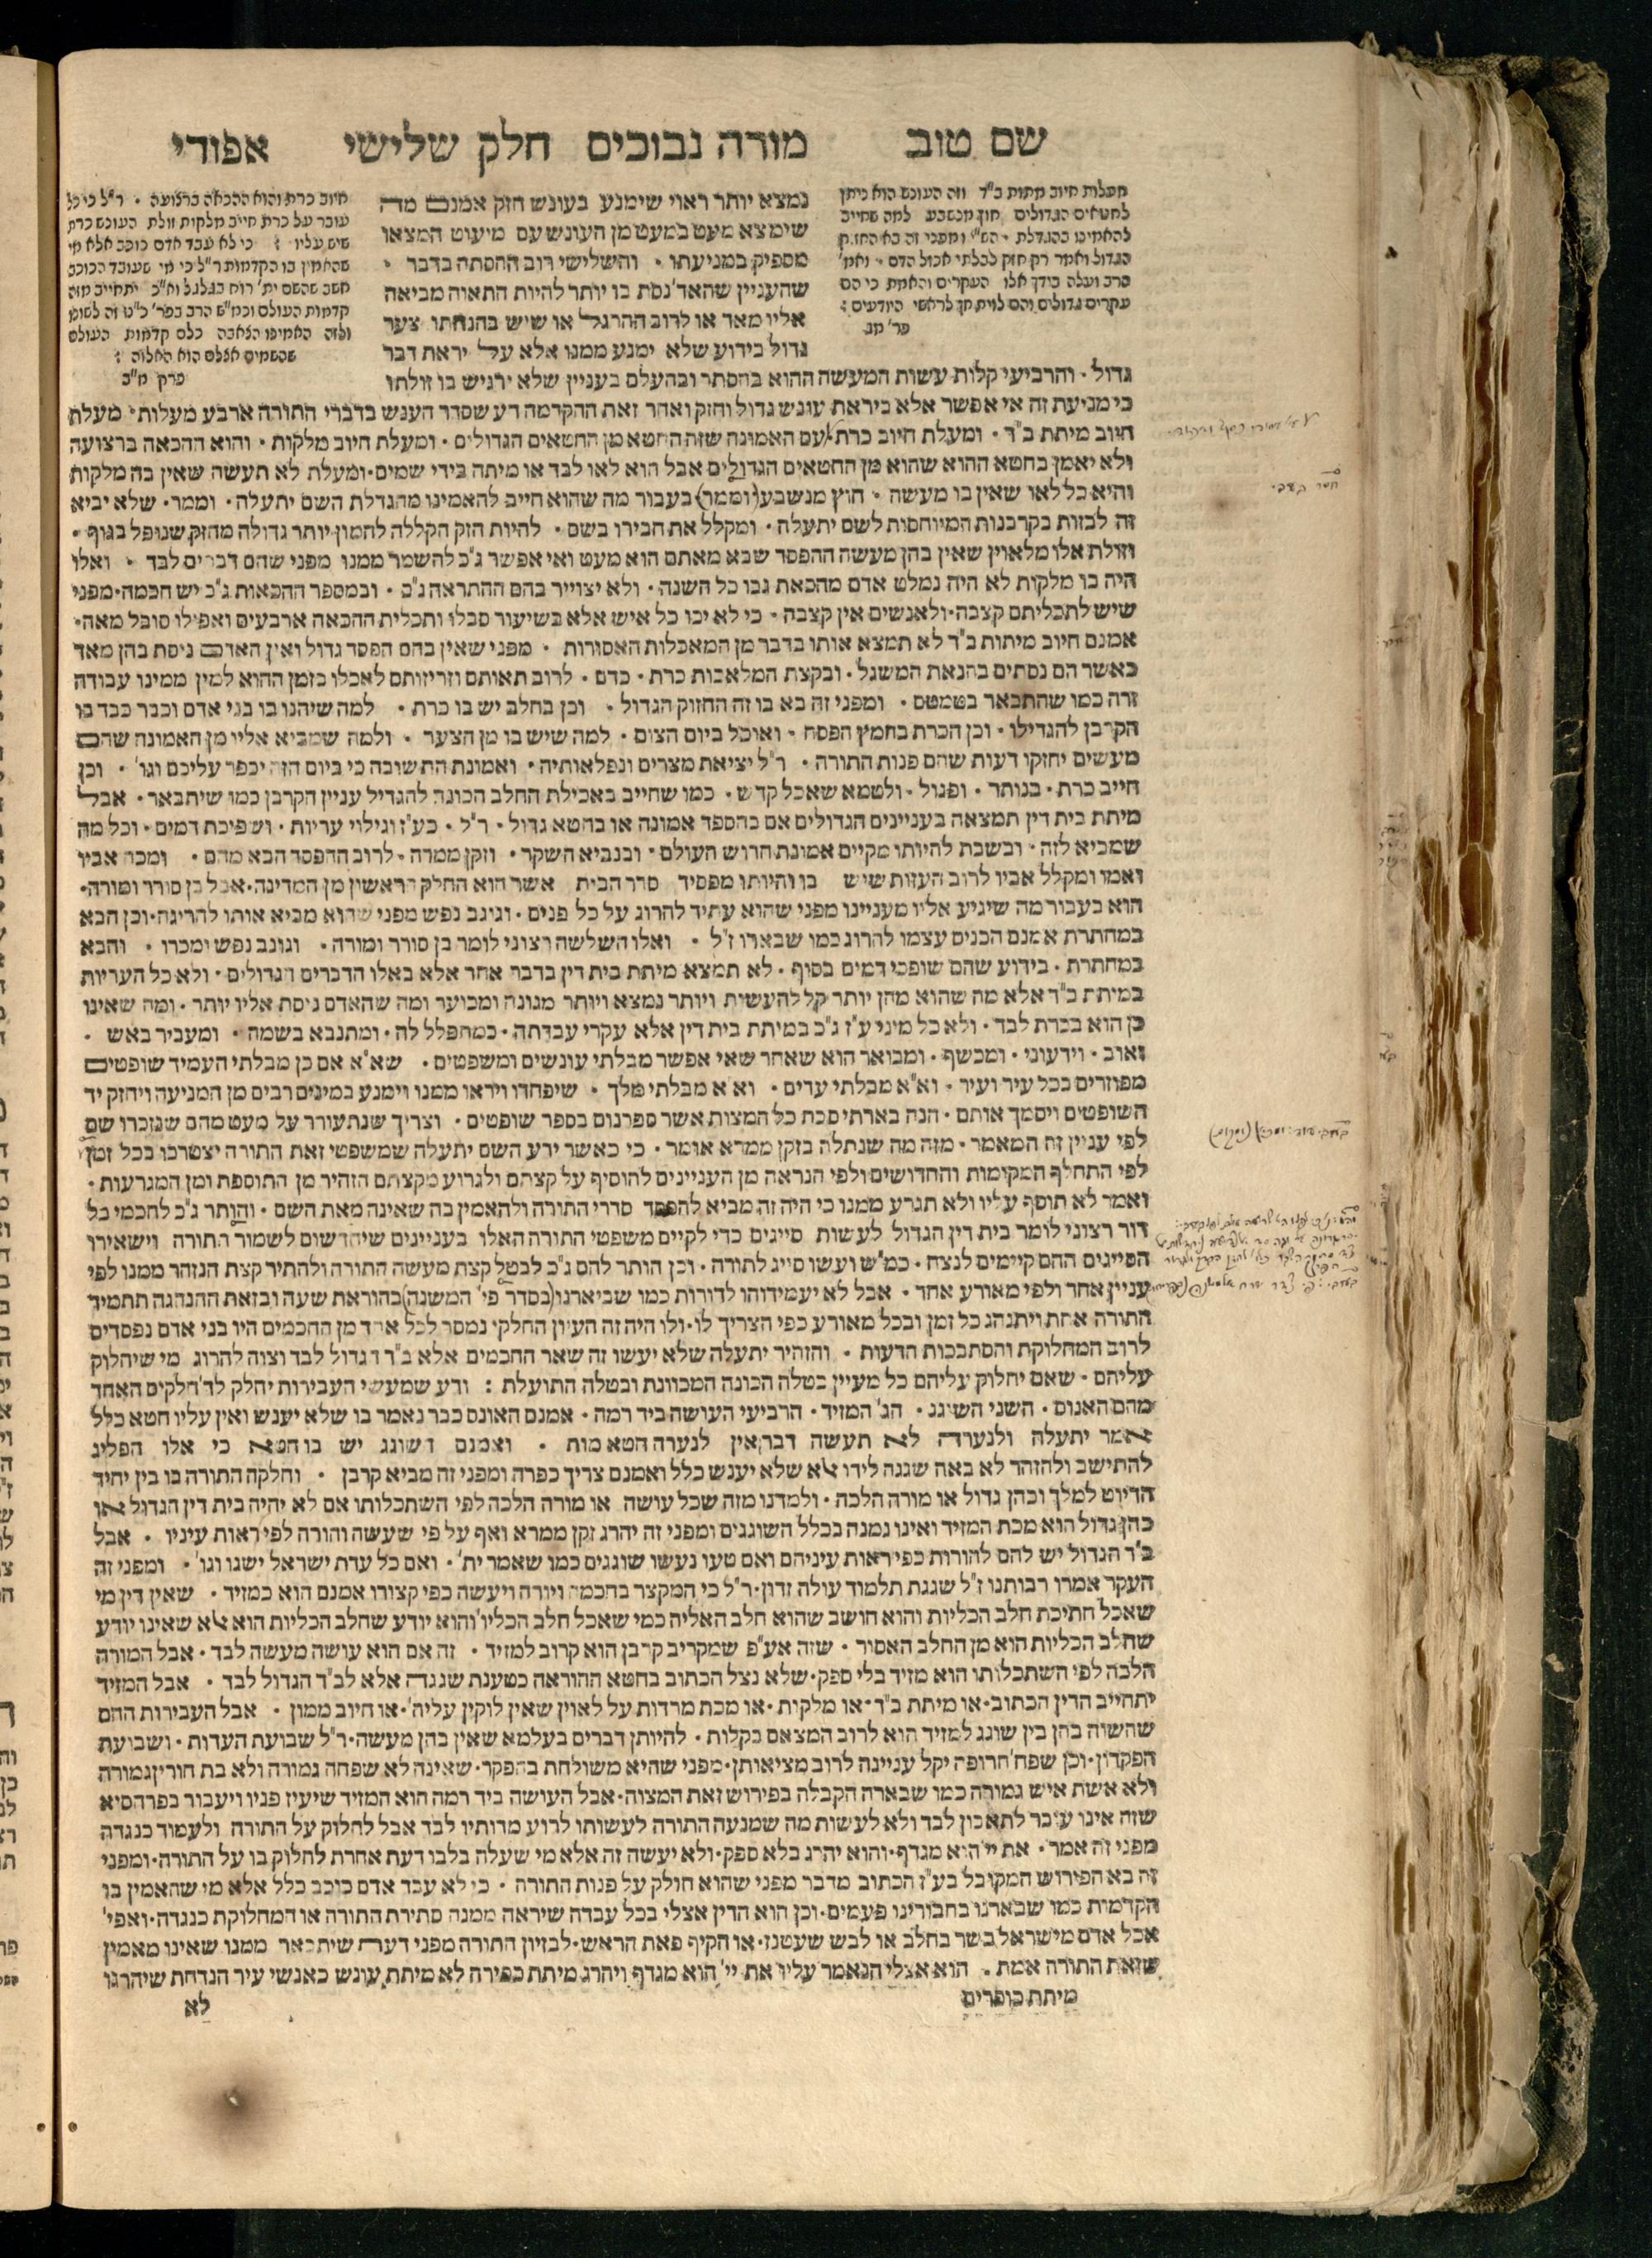 שם טוב
מורה נבוכים חלק שלישי
אפודי
מעלות חיוב מיתות ב"ד וזה העונש הוא ניתן
לחטאים הגדולים חוץ מנשבע למה שחייב
להאמינו בהגדלת הש"י ומפני זה בא החזוק
הגדול ואמר רק חזק לבלתי אכול הדם ואמ'
הרב ועלה בידך אלו העקרים והאמת כי הם
עקרים גדולים והם לוית חן לראשי היודעים :
פר' מג
נמצא יותר ראוי שימנע בעונש חזק אמנם מה
שימצא מעט במעט מן העונש עם מיעוט המצאו
מספיק במניעתו · והשלישי רוב ההסתה בדבר ·
שהעניין שהאד' נסת בו יותר להיות התאוה מביאה
אליו מאד או לרוב ההרגל או שיש בהנחתו צער
גדול בידוע שלא ימנע ממנו אלא על יראת דבר
חיוב כרת והוא ההכאה ברצועה · ר"ל כי כל
עובר על כרת חייב מלקות זולת העונש כרת
שיש עליו : כי לא עבד אדם כוכב אלא מי
שהאמין בו הקדמות ר"ל כי מי שעובד הכוכב
חשב שהשם ית' רוח בגלגל וא"כ יתחייב מזה
קדמות העולם וכמ"ש הרב בפר' כ"ט זה לשונו
ולזה האמינו הצאבה כלם קדמות העולם
שהשמים אצלם הוא האלוה :
פרק מ"ב
גדול · והרביעי קלות עשות המעשה ההוא בהסתר ובהעלם בעניין שלא ירגיש בו זולתו
כי מניעת זה אי אפשר אלא ביראת עונש גדול וחזק ואחר זאת ההקדמה דע שסדר הענש בדברי התורה ארבע מעלות · מעלת
חיוב מיתת ב"ד · ומעלת חיוב כרת עם האמונה שזה החטא מן החטאים הגדולים · ומעלת חיוב מלקות · והוא ההכאה ברצועה
ולא יאמן בחטא ההוא שהוא מן החטאים הגדולים אבל הוא לאו לבד או מיתה בידי שמים · ומעלת לא תעשה שאין בה מלקות
והיא כל לאו שאין בו מעשה · חוץ מנשבע (וממר) בעבור מה שהוא חייב להאמינו מהגדלת השם יתעלה · וממר · שלא יביא
זה לבזות בקרבנות המיוחסות לשם יתעלה · ומקלל את חבירו בשם · להיות הזק הקללה להמון יותר גדולה מהזק שנופל בגוף ·
וזולת אלו מלאוין שאין בהן מעשה ההפסד שבא מאתם הוא מעט ואי אפשר ג"כ להשמר ממנו מפני שהם דברים לבד · ואלו
היה בו מלקות לא היה נמלט אדם מהכאת גבו כל השנה · ולא יצוייר בהם ההתראה ג"כ · ובמספר ההכאות ג"כ יש חכמה · מפני
שיש לתכליתם קצבה · ולאנשים אין קצבה · כי לא יכו כל איש אלא בשיעור סבלו ותכלית ההכאה ארבעים ואפילו סובל מאה ·
אמנם חיוב מיתות ב"ד לא תמצא אותו בדבר מן המאכלות האסורות · מפני שאין בהם הפסד גדול ואין האדם ניסת בהן מאד
כאשר הם נסתים בהנאת המשגל · ובקצת המלאכות כרת · כדם · לרוב תאותם וזריזותם לאכלו בזמן ההוא למין ממיני עבודה
זרה כמו שהתבאר בטמטם · ומפני זה בא בו זה החזוק הגדול · וכן בחלב יש בו כרת · למה שיהנו בו בני אדם וכבר כבד בו
הקרבן להגדילו · וכן הכרת בחמץ הפסח · ואוכל ביום הצום · למה שיש בו מן הצער · ולמה שמביא אליו מן האמונה שהם
מעשים יחזקו דעות שהם פנות התורה · ר"ל יציאת מצרים ונפלאותיה · ואמונת התשובה כי ביום הזה יכפר עליכם וגו' · וכן
חייב כרת · בנותר · ופגול · ולטמא שאכל קדש · כמו שחייב באכילת החלב הכונה להגדיל עניין הקרבן כמו שיתבאר · אבל
מיתת בית דין תמצאה בעניינים הגדולים אם בהפסד אמונה או בחטא גדול · ר"ל · בע"ז וגילוי עריות · ושפיכת דמים · וכל מה
שמביא לזה · ובשבת להיותו מקיים אמונת חדוש העולם · ובנביא השקר · וזקן ממרה · לרוב ההפסד הבא מהם · ומכה אביו
ואמו ומקלל אביו לרוב העזות שיש בו והיותו מפסיד סדר הבית אשר הוא החלק הראשון מן המדינה · אבל בן סורר ומורה ·
הוא בעבור מה שיגיע אליו מעניינו מפני שהוא עתיד להרוג על כל פנים · וגונב נפש מפני שהוא מביא אותו להריגה · וכן הבא
במחתרת אמנם הכניס עצמו להרוג כמו שבארו ז"ל · ואלו השלשה רצוני לומר בן סורר ומורה · וגונב נפש ומכרו · והבא
במחתרת · בידוע שהם שופכי דמים בסוף · לא תמצא מיתת בית דין בדבר אחר אלא באלו הדברים הגדולים · ולא כל העריות
במיתת ב"ד אלא מה שהוא מהן יותר קל להעשית ויותר נמצא ויותר מגונה ומכוער ומה שהאדם ניסת אליו יותר · ומה שאינו
כן הוא בכרת לבד · ולא כל מיני ע"ז ג"כ במיתת בית דין אלא עקרי עבדתה · כמתפלל לה · ומתנבא בשמה · ומעביר באש ·
ואוב · וידעוני · ומכשף · ומבואר הוא שאחר שאי אפשר מבלתי עונשים ומשפטים · שא"א אם כן מבלתי העמיד שופטים
מפוזרים בכל עיר ועיר · וא"א מבלתי עדים · וא"א מבלתי מלך · שיפחדו ויראו ממנו וימנע במינים רבים מן המניעה ויחזק יד
השופטים ויסמך אותם · הנה בארתי סבת כל המצות אשר ספרנום בספר שופטים · וצריך שנתעורר על מעט מהם שנזכרו שם
לפי עניין זה המאמר · מזה מה שנתלה בזקן ממרא אומר · כי כאשר ידע השם יתעלה שמשפטי זאת התורה יצטרכו בכל זמן
לפי התחלף המקומות והחדושים ולפי הנראה מן העניינים להוסיף על קצתם ולגרוע מקצתם הזהיר מן התוספת ומן המגרעות ·
ואמר לא תוסף עליו ולא תגרע ממנו כי היה זה מביא להפסד סדרי התורה ולהאמין בה שאינה מאת השם · והותר ג"כ לחכמי כל
דור רצוני לומר בית דין הגדול לעשות סייגים כדי לקיים משפטי התורה האלו בעניינים שיחדשום לשמור התורה וישאירו
הסייגים ההם קיימים לנצח · כמ"ש ועשו סייג לתורה · וכן הותר להם ג"כ לבטל קצת מעשה התורה ולהתיר קצת הנזהר ממנו לפי
עניין אחד ולפי מאורע אחד · אבל לא יעמידוהו לדורות כמו שביארנו (בסדר פי' המשנה) בהוראת שעה ובזאת ההנהגה תתמיד
התורה אחת ויתנהג כל זמן ובכל מאורע כפי הצריך לו · ולו היה זה העיון החלקי נמסר לכל אחד מן החכמים היו בני אדם נפסדים
לרוב המחלוקת והסתבכות הדעות · והזהיר יתעלה שלא יעשו זה שאר החכמים אלא ב"ד הגדול לבד וצוה להרוג מי שיחלוק
עליהם · שאם יחלוק עליהם כל מעיין בטלה הכונה המכוונת ובטלה התועלת : ודע שמעשי העבירות יחלק לד' חלקים האחד
מהם האנוס · השני השוגג · הג' המזיד · הרביעי העושה ביד רמה · אמנם האונס כבר נאמר בו שלא יענש ואין עליו חטא כלל
אמר יתעלה ולנערה לא תעשה דבר אין לנערה חטא מות · ואמנם השוגג יש בו חטא כי אלו הפליג
להתישב ולהזהר לא באה שגגה לידו אלא שלא יענש כלל ואמנם צריך כפרה ומפני זה מביא קרבן · וחלקה התורה בו בין יחיד
הדיוט למלך וכהן גדול או מורה הלכה · ולמדנו מזה שכל עושה או מורה הלכה לפי השתכלותו אם לא יהיה בית דין הגדול או
כהן גדול הוא מכת המזיד ואינו נמנה בכלל השוגגים ומפני זה יהרג זקן ממרא ואף על פי שעשה והורה לפי ראות עיניו · אבל
ב"ד הגדול יש להם להורות כפי ראות עיניהם ואם טעו נעשו שוגגים כמו שאמר ית' · ואם כל עדת ישראל ישגו וגו' · ומפני זה
העקר אמרו רבותנו ז"ל שגגת תלמוד עולה זדון · ר"ל כי המקצר בחכמה ויורה ויעשה כפי קצורו אמנם הוא כמזיד · שאין דין מי
שאכל חתיכת חלב הכליות והוא חושב שהוא חלב האליה כמי שאכל חלב הכליו' והוא יודע שחלב הכליות הוא אלא שאינו יודע
שחלב הכליות הוא מן החלב האסור · שזה אע"פ שמקריב קרבן הוא קרוב למזיד · זה אם הוא עושה מעשה לבד · אבל המורה
הלכה לפי השתכלותו הוא מזיד בלי ספק · שלא נצל הכתוב בחטא ההוראה בטענת שגגה אלא לב"ד הגדול לבד · אבל המזיד
יתחייב הדין הכתוב · או מיתת ב"ד · או מלקות · או מכת מרדות על לאוין שאין לוקין עליה' · או חיוב ממון · אבל העבירות ההם
שהשוה בהן בין שוגג למזיד הוא לרוב המצאם בקלות · להיותן דברים בעלמא שאין בהן מעשה · ר"ל שבועת העדות · ושבועת
הפקדון · וכן שפח' חרופה יקל עניינה לרוב מציאותן · מפני שהיא משולחת בהפקר · שאינה לא שפחה גמורה ולא בת חורין גמורה
ולא אשת איש גמורה כמו שבארה הקבלה בפירוש זאת המצוה · אבל העושה ביד רמה הוא המזיד שיעיז פניו ויעבור בפרהסיא
שזה אינו עובר לתאבון לבד ולא לעשות מה שמנעה התורה לעשותו לרוע מדותיו לבד אבל לחלוק על התורה ולעמוד כנגדה
מפני זה אמר · את יי' הוא מגדף · והוא יהרג בלא ספק · ולא יעשה זה אלא מי שעלה בלבו דעת אחרת לחלוק בו על התורה · ומפני
זה בא הפירוש המקובל בע"ז הכתוב מדבר מפני שהוא חולק על פנות התורה · כי לא עבד אדם כוכב כלל אלא מי שהאמין בו
הקדמות כמו שבארנו בחבורינו פעמים · וכן הוא הדין אצלי בכל עבדה שיראה ממנה סתירת התורה או המחלוקת כנגדה · ואפי'
אכל אדם מישראל בשר בחלב או לבש שעטנז · או הקיף פאת הראש · לבזיון התורה מפני דעת שיתבאר ממנו שאינו מאמין
שזאת התורה אמת · הוא אצלי הנאמר עליו את יי' הוא מגדף ויהרג מיתת כפירה לא מיתת עונש כאנשי עיר הנדחת שיהרגו
מיתת כופרים
לא